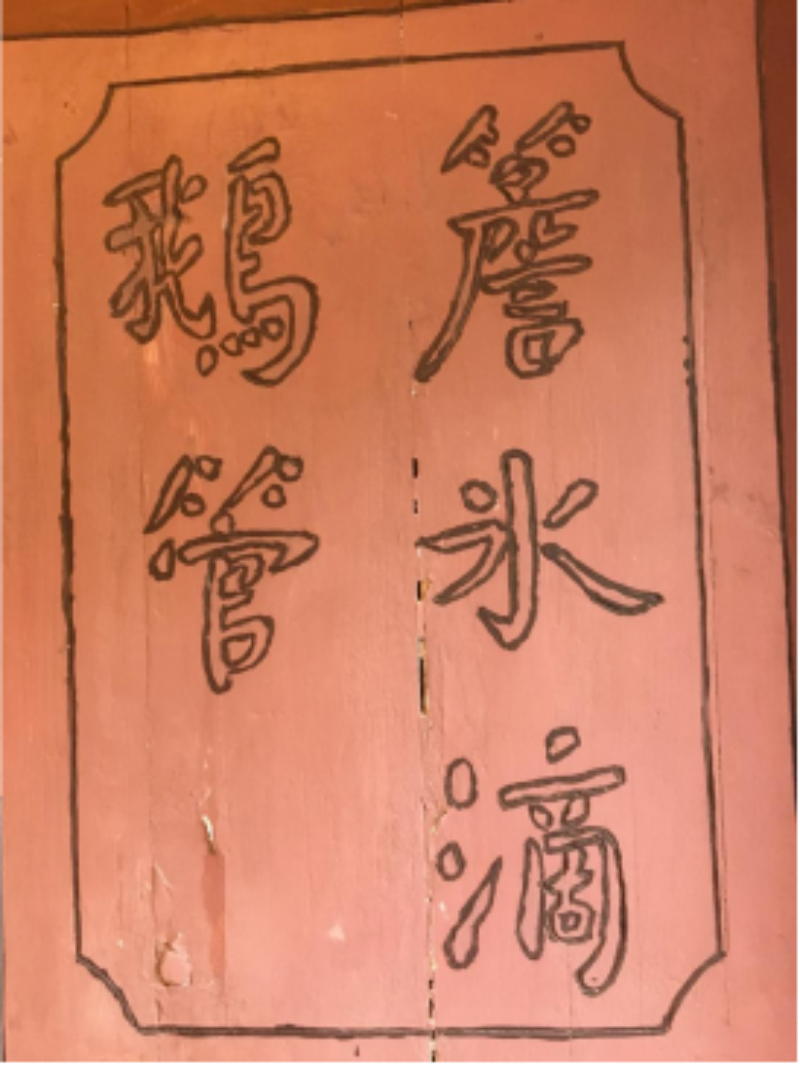 簷氷滴
鵝管